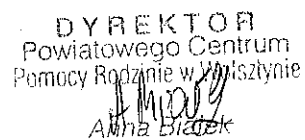 DYREKTOR
Powiatowego Centrum
Pomocy Rodzinie w Wolsztynie
Anna Białek